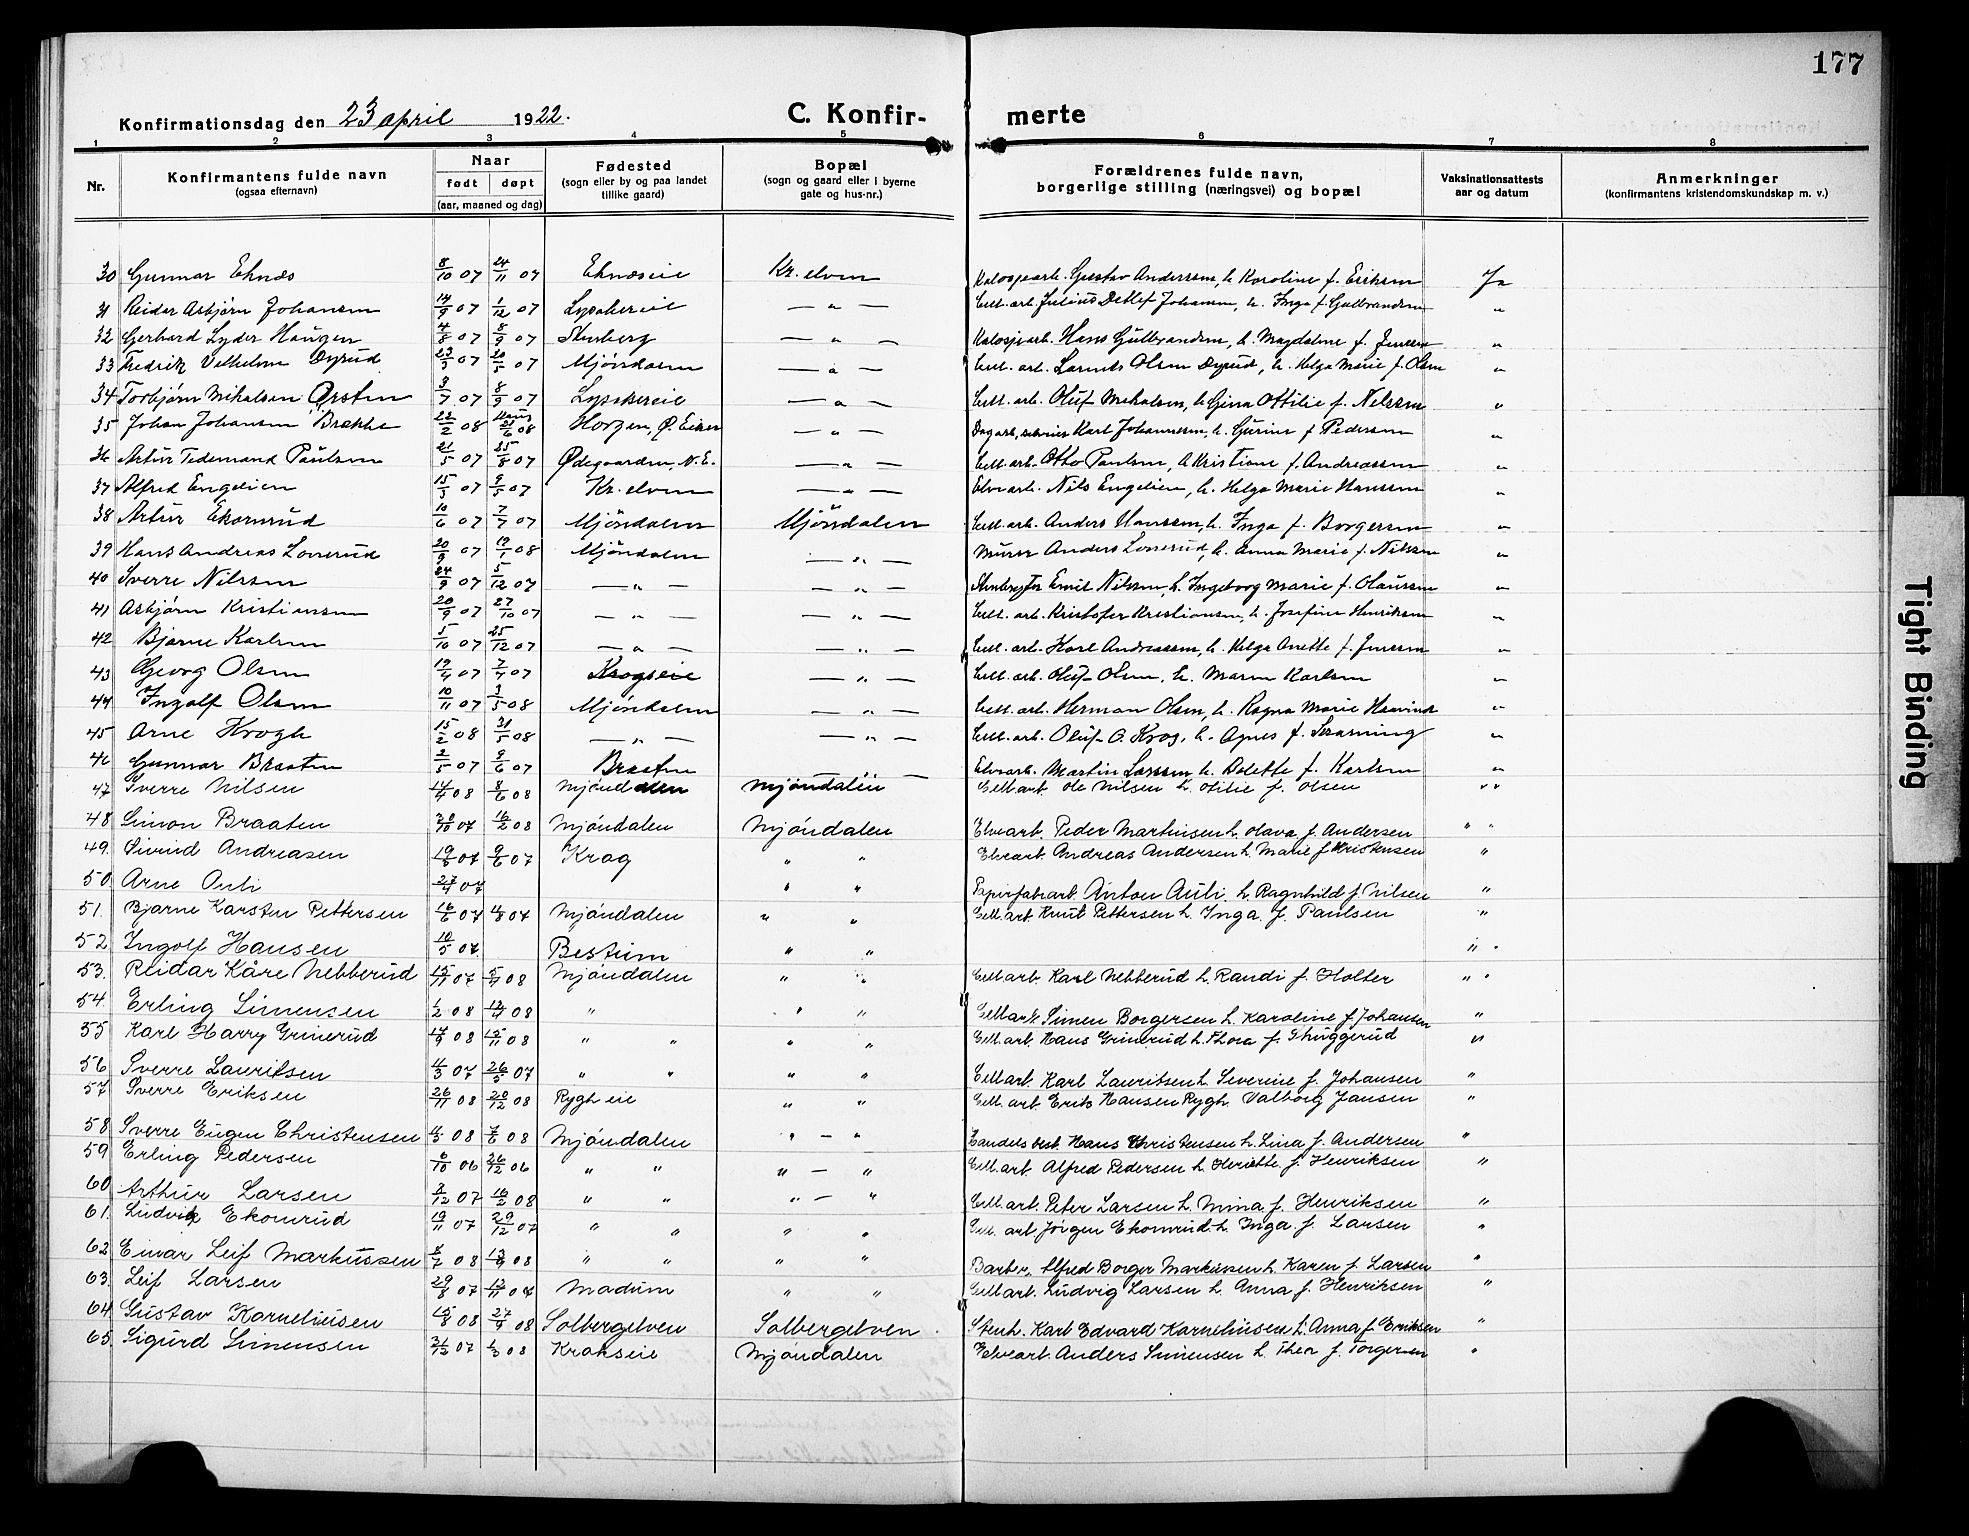 177
Konfirmationsdag den 23 april 1922.
C. Konfir-
merte
1 2 3 4 5 6 7 8
Nr.
Konfirmantens fulde navn
(ogsaa efternavn)
Naar
født døpt
(aar, maaned og dag)
Fødested
(sogn eller by og paa landet
tillike gaard)
Bopæl
(sogn og gaard eller i byerne
gate og hus-nr.)
Forældrenes fulde navn,
borgerlige stilling (næringsvei) og bopæl
Vaksinationsattests
aar og datum
Anmerkninger
(konfirmantens kristendomskundskap m. v.)
30 Gunnar Eknæs 8/10 07 24/11 07 Eknæseie Kr. elven Gustav Anderssen, h. Karoline f. Eriksen Ja
31 Reidar Asbjørn Johansen 14/9 07 1/12 07 Lysakereie — " — Cell. arb. Julius Detlef Johansen, h. Inga f. Gulbrandsen "
32 Gerhard Lyder Haugen 4/8 07 8/9 07 Stenberg — " — Hans Gulbrandsen, h. Magdalene f. Jensen "
33 Fredrik Vilhelm Dyrud 20/5 07 Mjøndalen — " — Cell. arb. Olsen Dyrud, h. Helga Marie f. Olsen "
34 Torbjørn Mikalsen Ørsten 3/7 07 8/9 07 Lysakereie — " — Cell. arb. Oluf Mikalsen, h. Gina Ottilie f. Nilssen "
35 Johan Johansen Brekke 22/2 08 21/6 08 Horgen, Ø. Eiker — " — Karl Johannessen, h. Gurine f. Pedersen "
36 Artur Tedemand Paulsen 21/5 07 25/8 07 Ødegaarden, N. E. — " — Cell. arb. Otto Paulsen, h. Kristiane f. Andreassen "
37 Alfred Engelien 15/3 07 9/5 07 Kr. elven — " — Elvearb. Nils Engelien, h. Helga Marie Hanssen "
38 Artur Ekornrud 10/6 07 7/7 07 Mjøndalen Mjøndalen Cell. arb. Anders Hanssen, h. Inga f. Borgersen "
39 Hans Andreas Lonerud 20/9 07 19/1 08 Mjøndalen — " — Murer Anders Lonerud, h. Anna Marie f. Nilsen "
40 Sverre Nilssen 24/9 07 5/12 07 — " — — " — Emil Nilssen, h. Ingeborg Marie f. Olaussen "
41 Asbjørn Kristiansen 20/9 07 27/10 07 — " — — " — Cell. arb. Kristofer Kristiansen, h. Josefine Henriksen "
42 Bjarne Karlsen 5/10 07 25/12 07 — " — — " — Cell. arb. Karl Andreassen, h. Helga Anette f. Jenssen "
43 Georg Olsen 19/4 07 7/7 07 Krogseie — " — Cell. arb. Oluf Olsen, h. Maren Karlsen "
44 Ingolf Olsen 10/11 07 3/5 08 Mjøndalen — " — Cell. arb. Herman Olsen, h. Ragna Marie "
45 Arne Krogh 15/2 08 31/5 08 — " — — " — Cell. arb. Oluf O. Krog, h. Agnes f. Skarning "
46 Gunnar Braaten 2/5 07 9/6 07 Braaten — " — Elvearb. Martin Larssen h. Dolette f. Karlsen "
47 Sverre Nilsen 14/4 08 8/6 08 Mjøndalen Mjøndalen Cell arb. Ole Nilsen h. Otilie f. Olsen " "
48 Simon Braaten 20/10 07 16/2 08 Mjøndalen Mjøndalen Elvearb. Peder Martinsen h. Olava f. Andersen " "
49. Sivind Andreasen 19/6 07 9/6 07 Krog " " Elvearb. Andreas Andersen h. Marie f. Kristensen "
50 Arne Auli 27/4 07 " " Papirfabrarb. Anton Auli h. Ragnhild f. Nilsen "
51. Bjarne Karsten Pettersen 16/6 07 4/8 07 Mjøndalen " " Cell. arb. Knut Pettersen h. Inga f. Paulsen "
52 Ingolf Hansen 10/5 07. Bestum " " " "
53. Reidar Kåre Nebberud 15/11 07 5/4 08 Mjøndalen " " Cell arb. Karl Nebberud h. Randi f. Holter " "
54. Erling Simensen 1/2 08 12/4 08 " " " Cell arb. Simen Borgersen h. Karoline f. Johansen "
55 Karl Harry Grinerud 14/9 08 15/11 08 " " " " Cell. arb. Hans Grinerud h. Thora f. "
56 Sverre Lauritsen 4/3 07 26/5 07 " " " " Cell arb. Karl Lauritsen h. Severine f. Johansen "
57 Sverre Eriksen 26/11 08 20/12 08 Rygh eie " " Cell. arb. Erik Hansen Rygh. Valborg Jansen "
58 Sverre Eugen Christensen 4/3 08 7/6 08 Mjøndalen " — " Handels best. Hans Christensen h. Lina f. Andersen "
59 Erling Pedersen 6/10 06 26/12 06 " " " — " Cell. arb. Alfred Pedersen h. Henriette f. Henriksen "
60 Arthur Larsen 2/12 07 16/2 08 " " " — " Cell. arb. Peter Larsen h. Mina f. Henriksen "
61. Ludvig Ekornrud 19/11 07 29/12 07 " " " " Cell. arb. Jørgen Ekornrud h. Inga f. Larsen "
62 Einar Leif Markussen 2/2 08 13/9 08 " " " " Barber. Alfred Borger Markussen h. Karen f. Larsen "
63. Leif Larsen 29/8 07 12/11 07 Modum " " Cell arb. Ludvig Larsen h. Anna f. Henriksen "
64. Gustav Korneliusen 15/8 08 27/9 08 Solbergelven Solbergelven. Stenh. Karl Edvard Korneliusen h. Anna f. Eriksen "
65. Sigurd Simensen 2/12 07 1/3 08 Krokseie Mjøndalen Elvearb. Anders Simensen h. Thea f. Torgersen "
Tight Binding